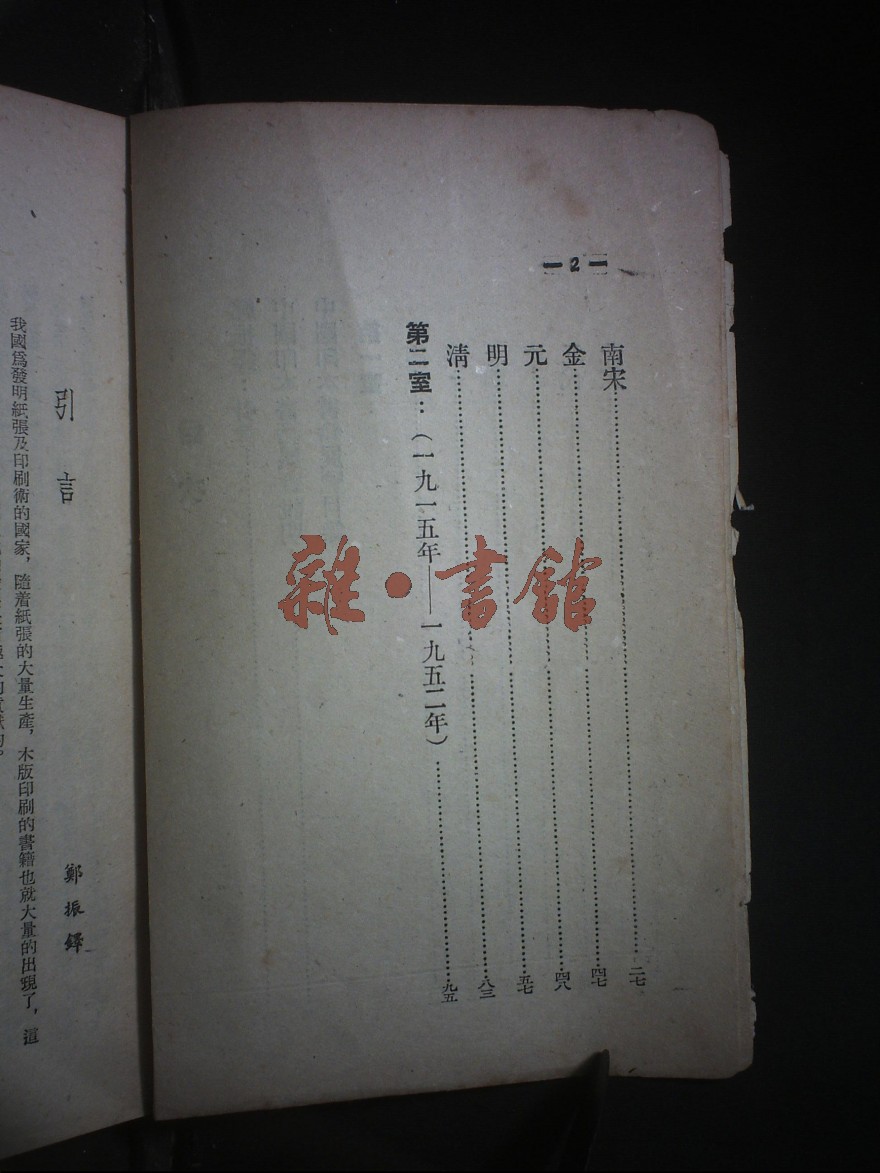 —2—
南宋……二七
金……四七
元……四八
明……五七
清……八三
第二室：（一九一五年——一九五二年）……九五
雜·書館
引言
鄭振鐸
我國爲發明紙張及印刷術的國家，隨着紙張的大量生產，木版印刷的書籍也就大量的出現了，這